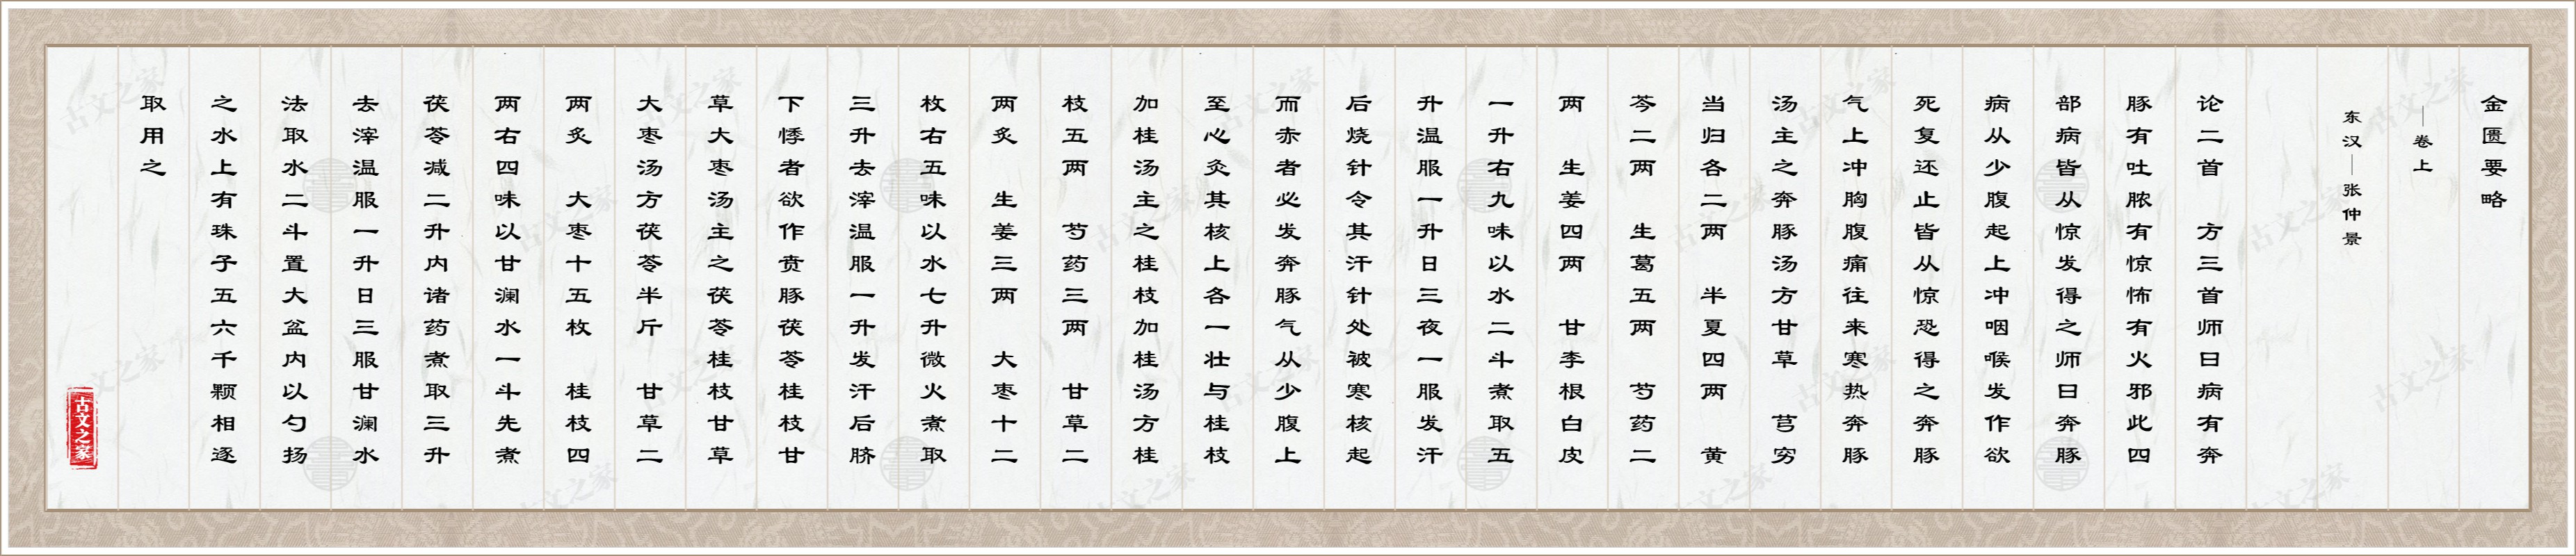 金匮要略
—卷上
东汉—张仲景
论二首　方三首师日病有奔
豚有吐脓有惊怖有火邪此四
部病皆从惊发得之师日奔豚
病从少腹起上冲咽喉发作欲
死复还止皆从惊恐得之奔豚
气上冲胸腹痛往来寒热奔豚
汤主之奔豚汤方甘草　芎穷
当归各二两　半夏四两　黄
芩二两　生葛五两　芍药二
两　生姜四两　甘李根白皮
一升右九味以水二斗煮取五
升温服一升日三夜一服发汗
后烧针令其汗针处被寒核起
而赤者必发奔豚气从少腹上
至心灸其核上各一壮与桂枝
加桂汤主之桂枝加桂汤方桂
枝五两　芍药三两　甘草二
两炙　生姜三两　大枣十二
枚右五味以水七升微火煮取
三升去滓温服一升发汗后脐
下悸者欲作贲豚茯苓桂枝甘
草大枣汤主之茯苓桂枝甘草
大枣汤方茯苓半斤　甘草二
两炙　大枣十五枚　桂枝四
两右四味以甘澜水一斗先煮
茯苓减二升内诸药煮取三升
去滓温服一升日三服甘澜水
法取水二斗置大盆内以勺扬
之水上有珠子五六千颗相逐
取用之
古文之家